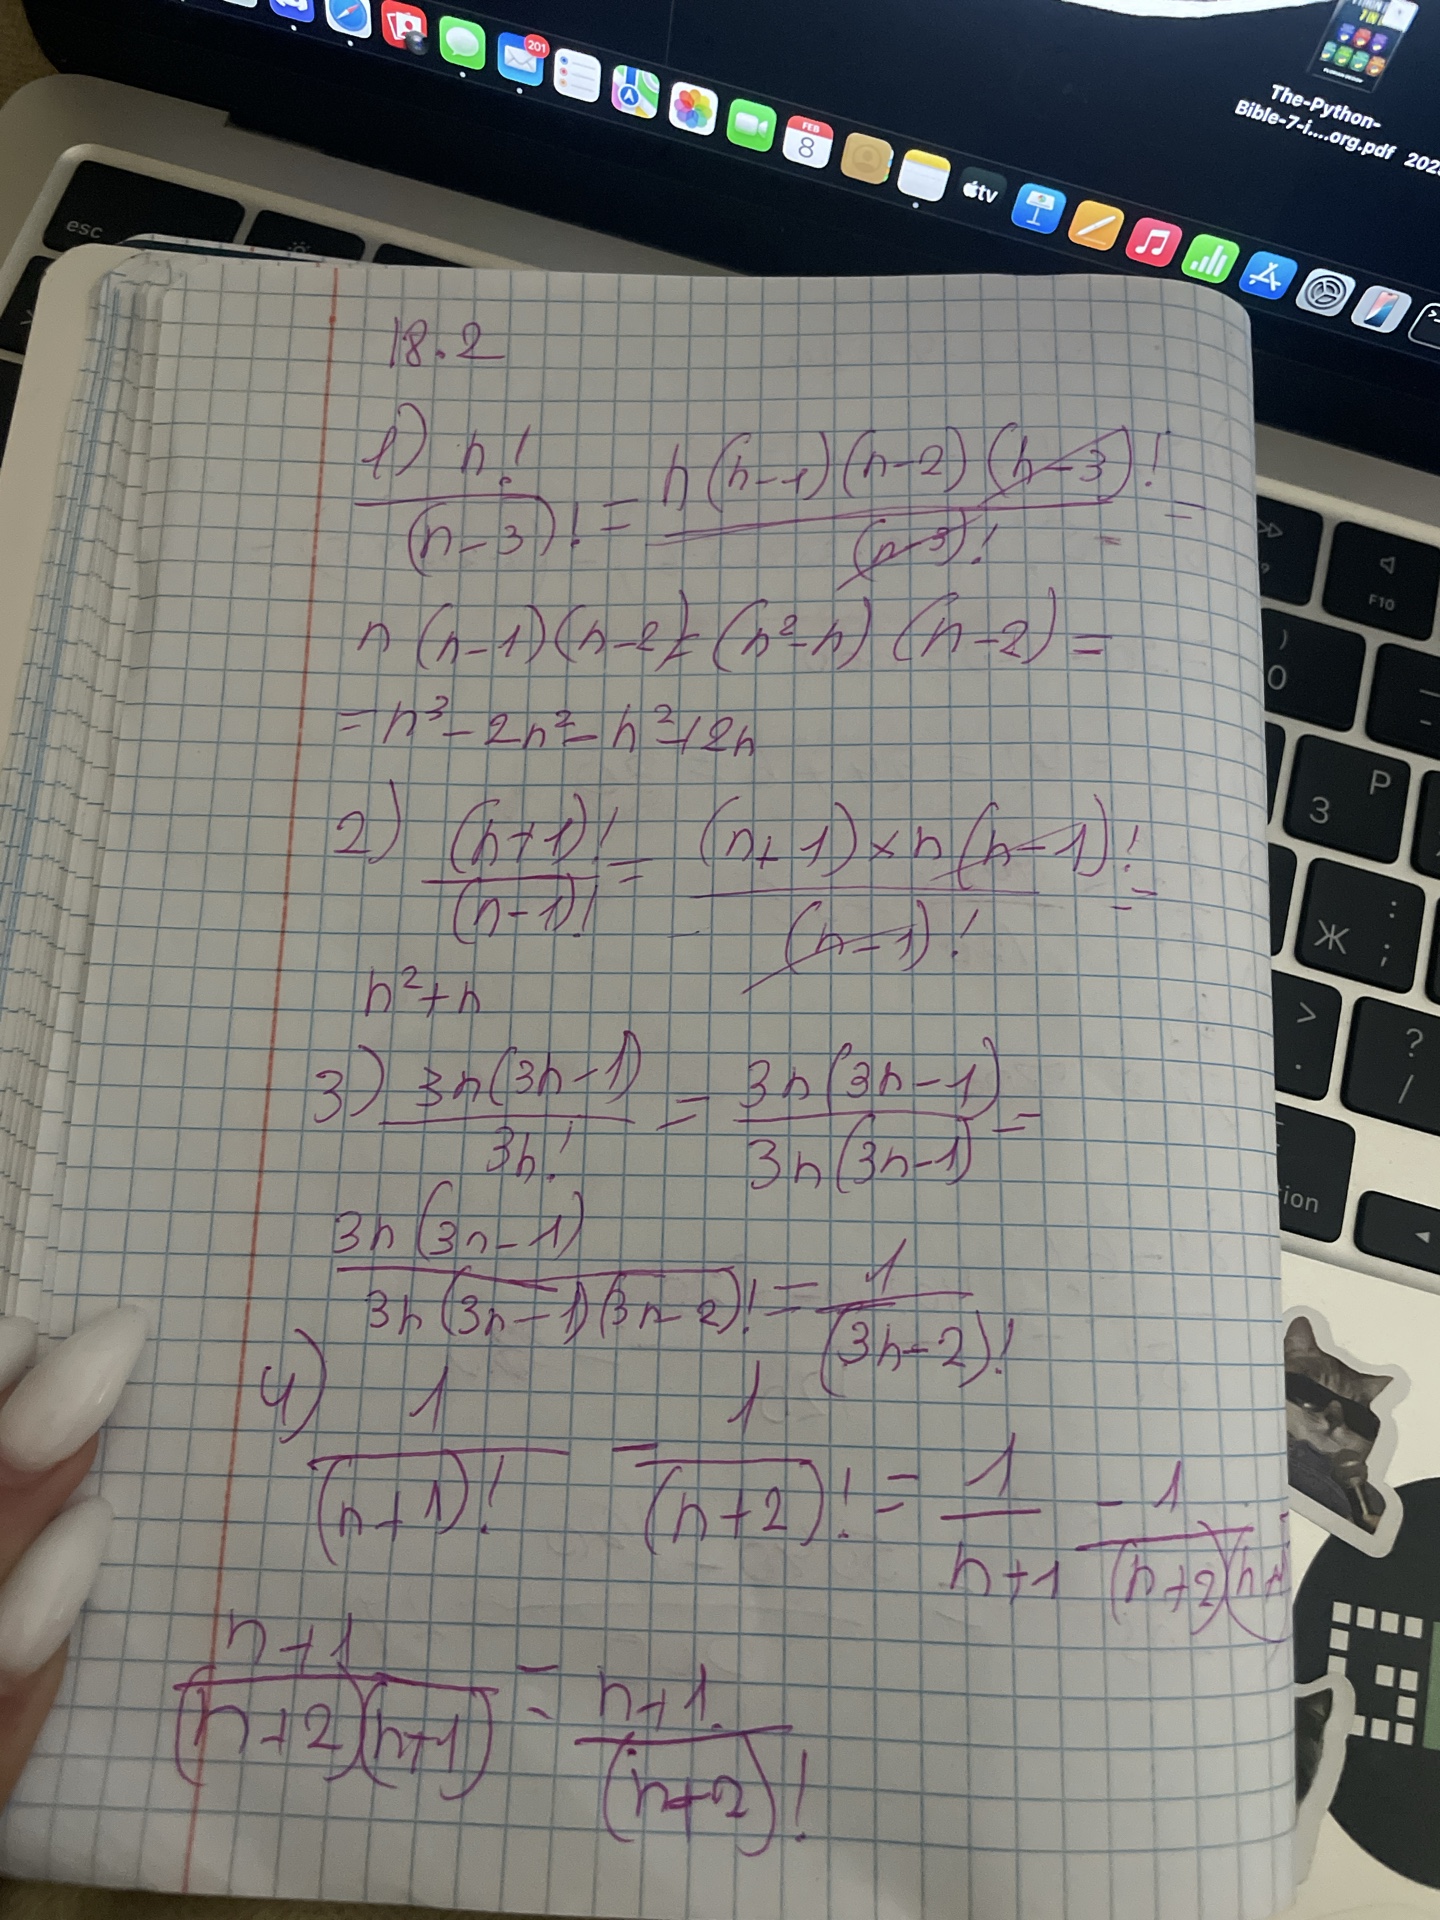 201
FEB
8
tv
The-Python-
Bible-7-i....org.pdf
esc
F10
0
P
З
Ж
:
;
>
.
?
/
18.2
1) n! / (n-3)! = n(n-1)(n-2)(n-3)! / (n-3)! =
n(n-1)(n-2) = (n²-n)(n-2) =
= n³-2n²-n²+2n
2) (n+1)! / (n-1)! = (n+1)×n(n-1)! / (n-1)! =
n²+n
3) 3n(3n-1) / 3n! = 3n(3n-1) / 3n(3n-1) =
3n(3n-1) / 3n(3n-1)(3n-2)! = 1 / (3n-2)!
4) 1 / (n+1)! - 1 / (n+2)! = 1 / n+1 - 1 / (n+2)(n+1
n+1 / (n+2)(n+1) = n+1 / (n+2)!